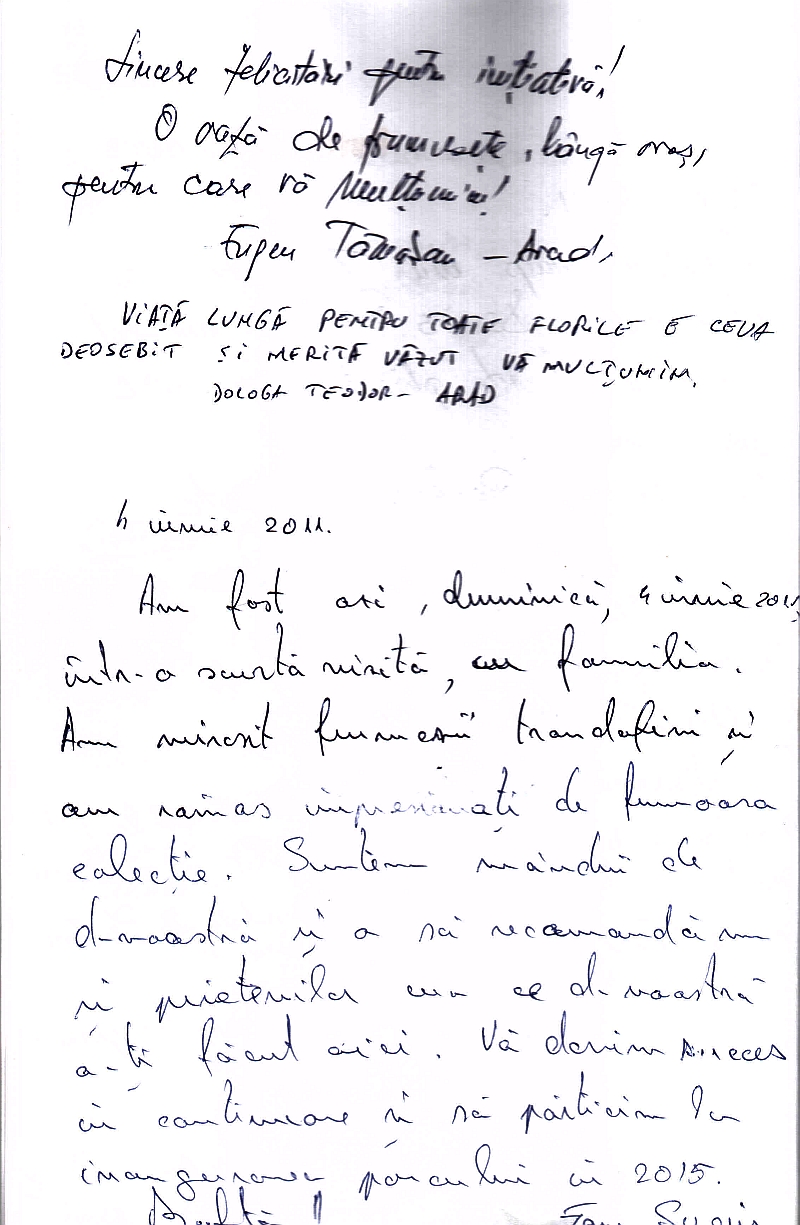 Sincere felicitări pentru inițiativă!
O oază de frumusețe, lângă oraș,
pentru care vă mulțumim!
Eugen Tămășan – Arad,
VIAȚĂ LUNGĂ PENTRU TOATE FLORILE E CEVA
DEOSEBIT ȘI MERITĂ VĂZUT VĂ MULȚUMIM.
DOLOGA TEODOR – ARAD
4 iunie 2011.
Am fost azi, duminică, 4 iunie 2011,
într-o scurtă vizită, cu familia.
Am mirosit frumoșii trandafiri și
am rămas impresionați de frumoasa
colecție. Suntem mândri de
d-voastră și o să recomandăm
și prietenilor cea ce d-voastră
a-ți făcut aici. Vă dorim succes
în continuare și să participăm la
inaugurarea parcului în 2015.
Baftă! Fam.